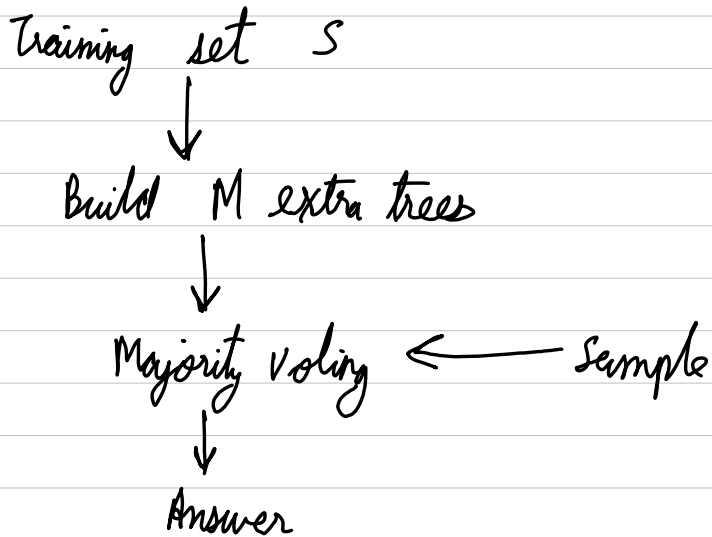 Training set S
Build M extra trees
Majority voting
Sample
Answer